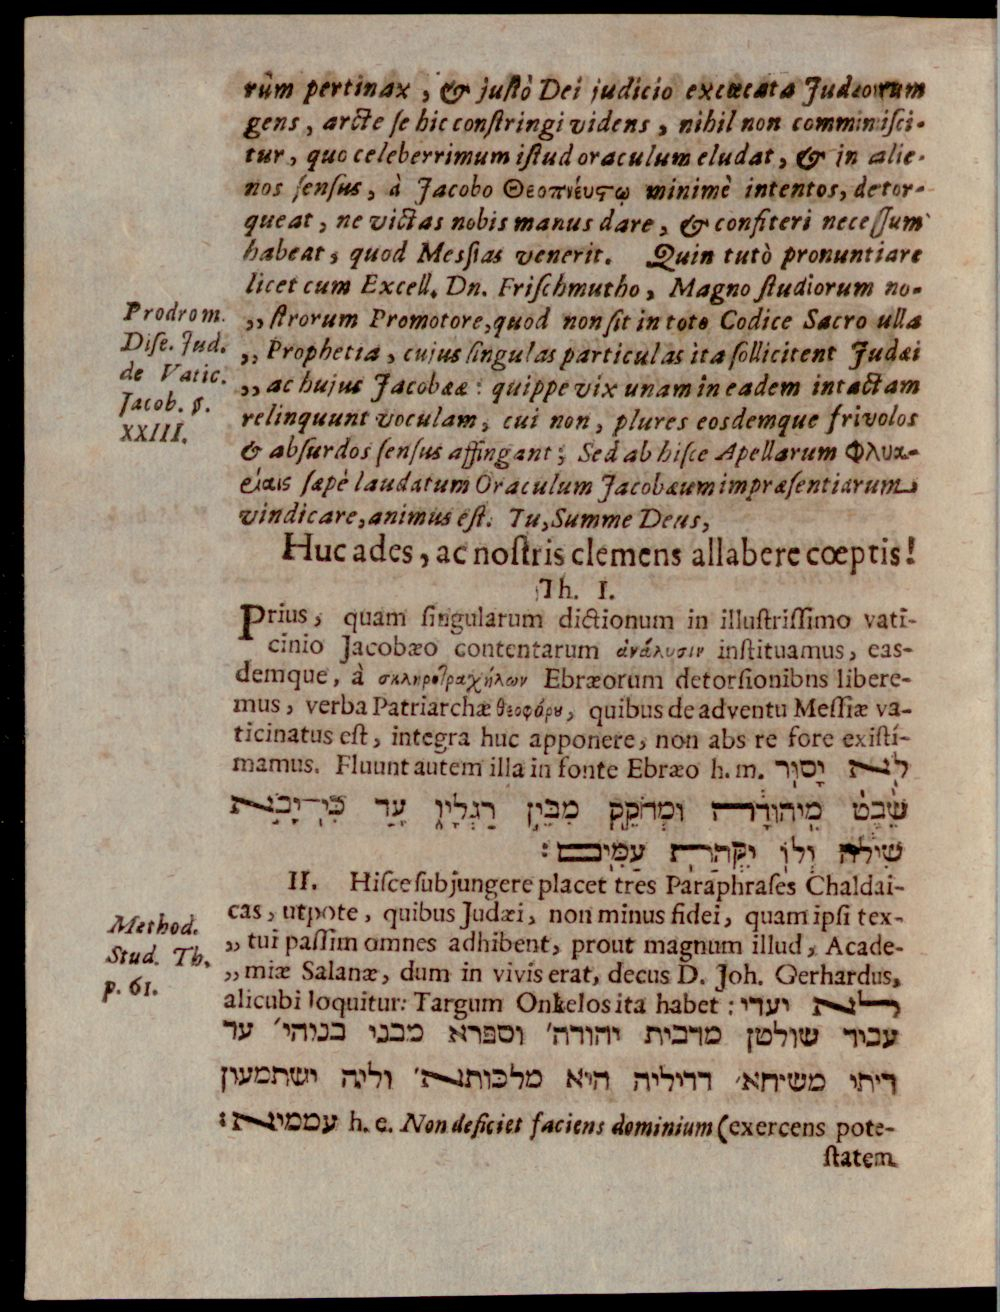 rûm pertinax, & justò Dei judicio excæcata Judæorum
gens, arcte se hic constringi videns, nihil non comminisci-
tur, quo celeberrimum istud oraculum eludat, & in alie-
nos sensus, à Jacobo Θεοπνέυςῳ minimè intentos, detor-
queat, ne victas nobis manus dare, & confiteri necessum
habeat, quod Messias venerit. Quin tutò pronuntiare
licet cum Excell. Dn. Frischmutho, Magno studiorum no-
Prodrom. ,, strorum Promotore, quod non sit in toto Codice Sacro ulla
Diss. Jud. ,, Prophetia, cujus singulas particulas ita sollicitent Judæi
de Vatic. ,, ac hujus Jacobææ: quippe vix unam in eadem intactam
Jacob. §. relinquunt voculam, cui non, plures eosdemque frivolos
XXIII. & absurdos sensus affingant; Sed ab hisce Apellarum Φλυα-
είαις sæpè laudatum Oraculum Jacobæum impræsentiarum
vindicare, animus est. Tu, Summe Deus,
Huc ades, ac nostris clemens allabere cœptis!
Th. I.
Prius, quam singularum dictionum in illustrissimo vati-
cinio Jacobæo contentarum ἀνάλυσιν instituamus, eas-
demque, à σκληροτραχήλων Ebræorum detorsionibns libere-
mus, verba Patriarchæ θεοφόρου, quibus de adventu Messiæ va-
ticinatus est, integra huc apponere, non abs re fore existi-
mamus. Fluunt autem illa in fonte Ebræo h. m. לֹא יָסוּר
שֵׁבֶט מִיהוּדָה וּמְחֹקֵק מִבֵּין רַגְלָיו עַד כִּי־יָבֹא
שִׁילֹה וְלוֹ יִקְּהַת עַמִּים:
II. Hisce subjungere placet tres Paraphrases Chaldai-
cas, utpote, quibus Judæi, non minus fidei, quam ipsi tex-
Method. ,, tui passim omnes adhibent, prout magnum illud, Acade-
Stud. Th. ,, miæ Salanæ, dum in vivis erat, decus D. Joh. Gerhardus,
p. 61. alicubi loquitur: Targum Onkelos ita habet: לא יעדי
עביד שולטן מדבית יהודה׳ וספרא מבני בנוהי׳ עד
דיתי משיחא׳ דדיליה היא מלכותא׳ וליה ישתמעון
עממיא: h. e. Non deficiet faciens dominium (exercens pote-
statem